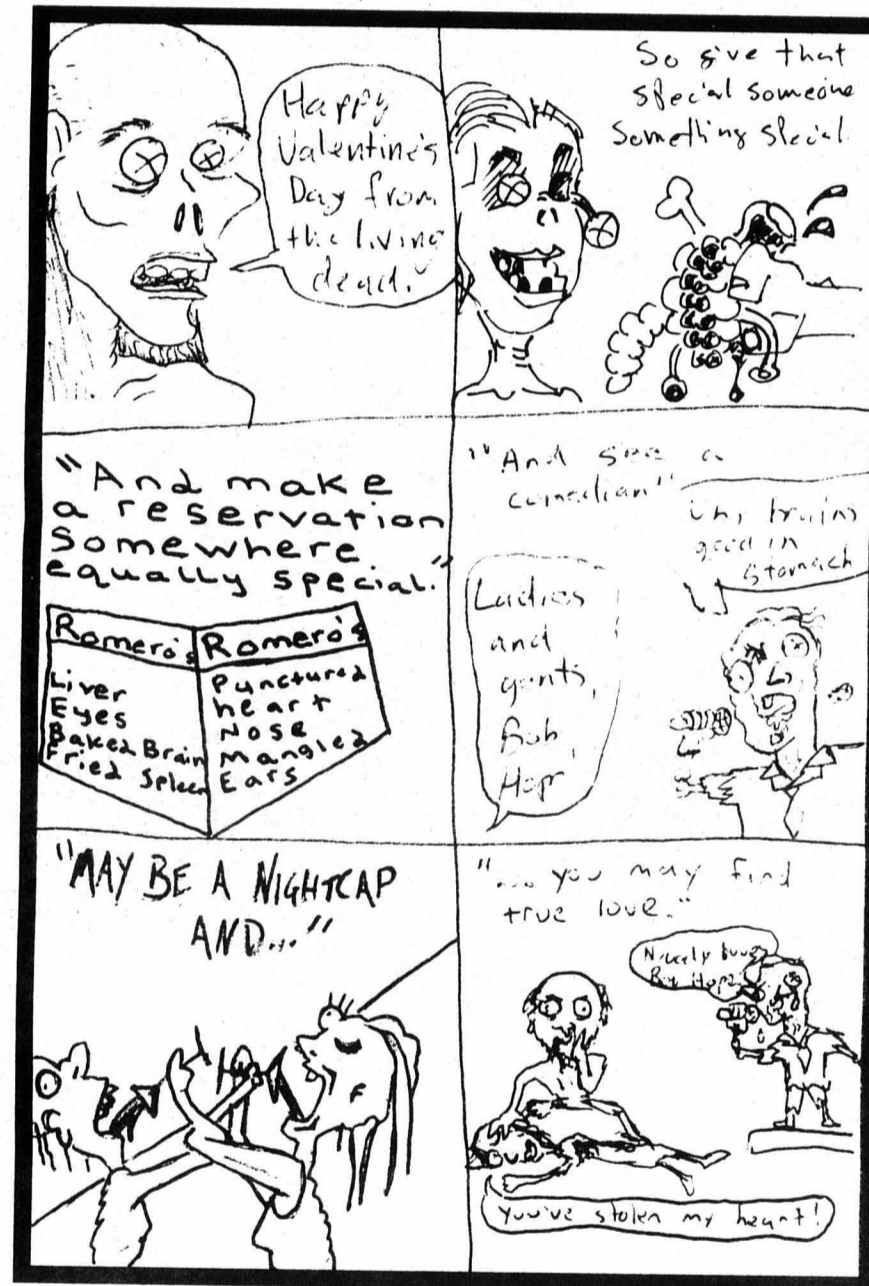 Happy
Valentine's
Day from
the living
dead.
So give that
special someone
Something special.
"And make
a reservation
Somewhere
equally special."
Romero's
Liver
Eyes
Baked Brain
Fried Spleen
Romero's
Punctured
heart
Nose
Mangled
Ears
"And see a
comedian"
Uh, brains
good in
stomach
Ladies
and
gents,
Bob
Hop
"MAY BE A NIGHTCAP
AND..."
"... you may find
true love."
Bob Hope
You've stolen my heart!